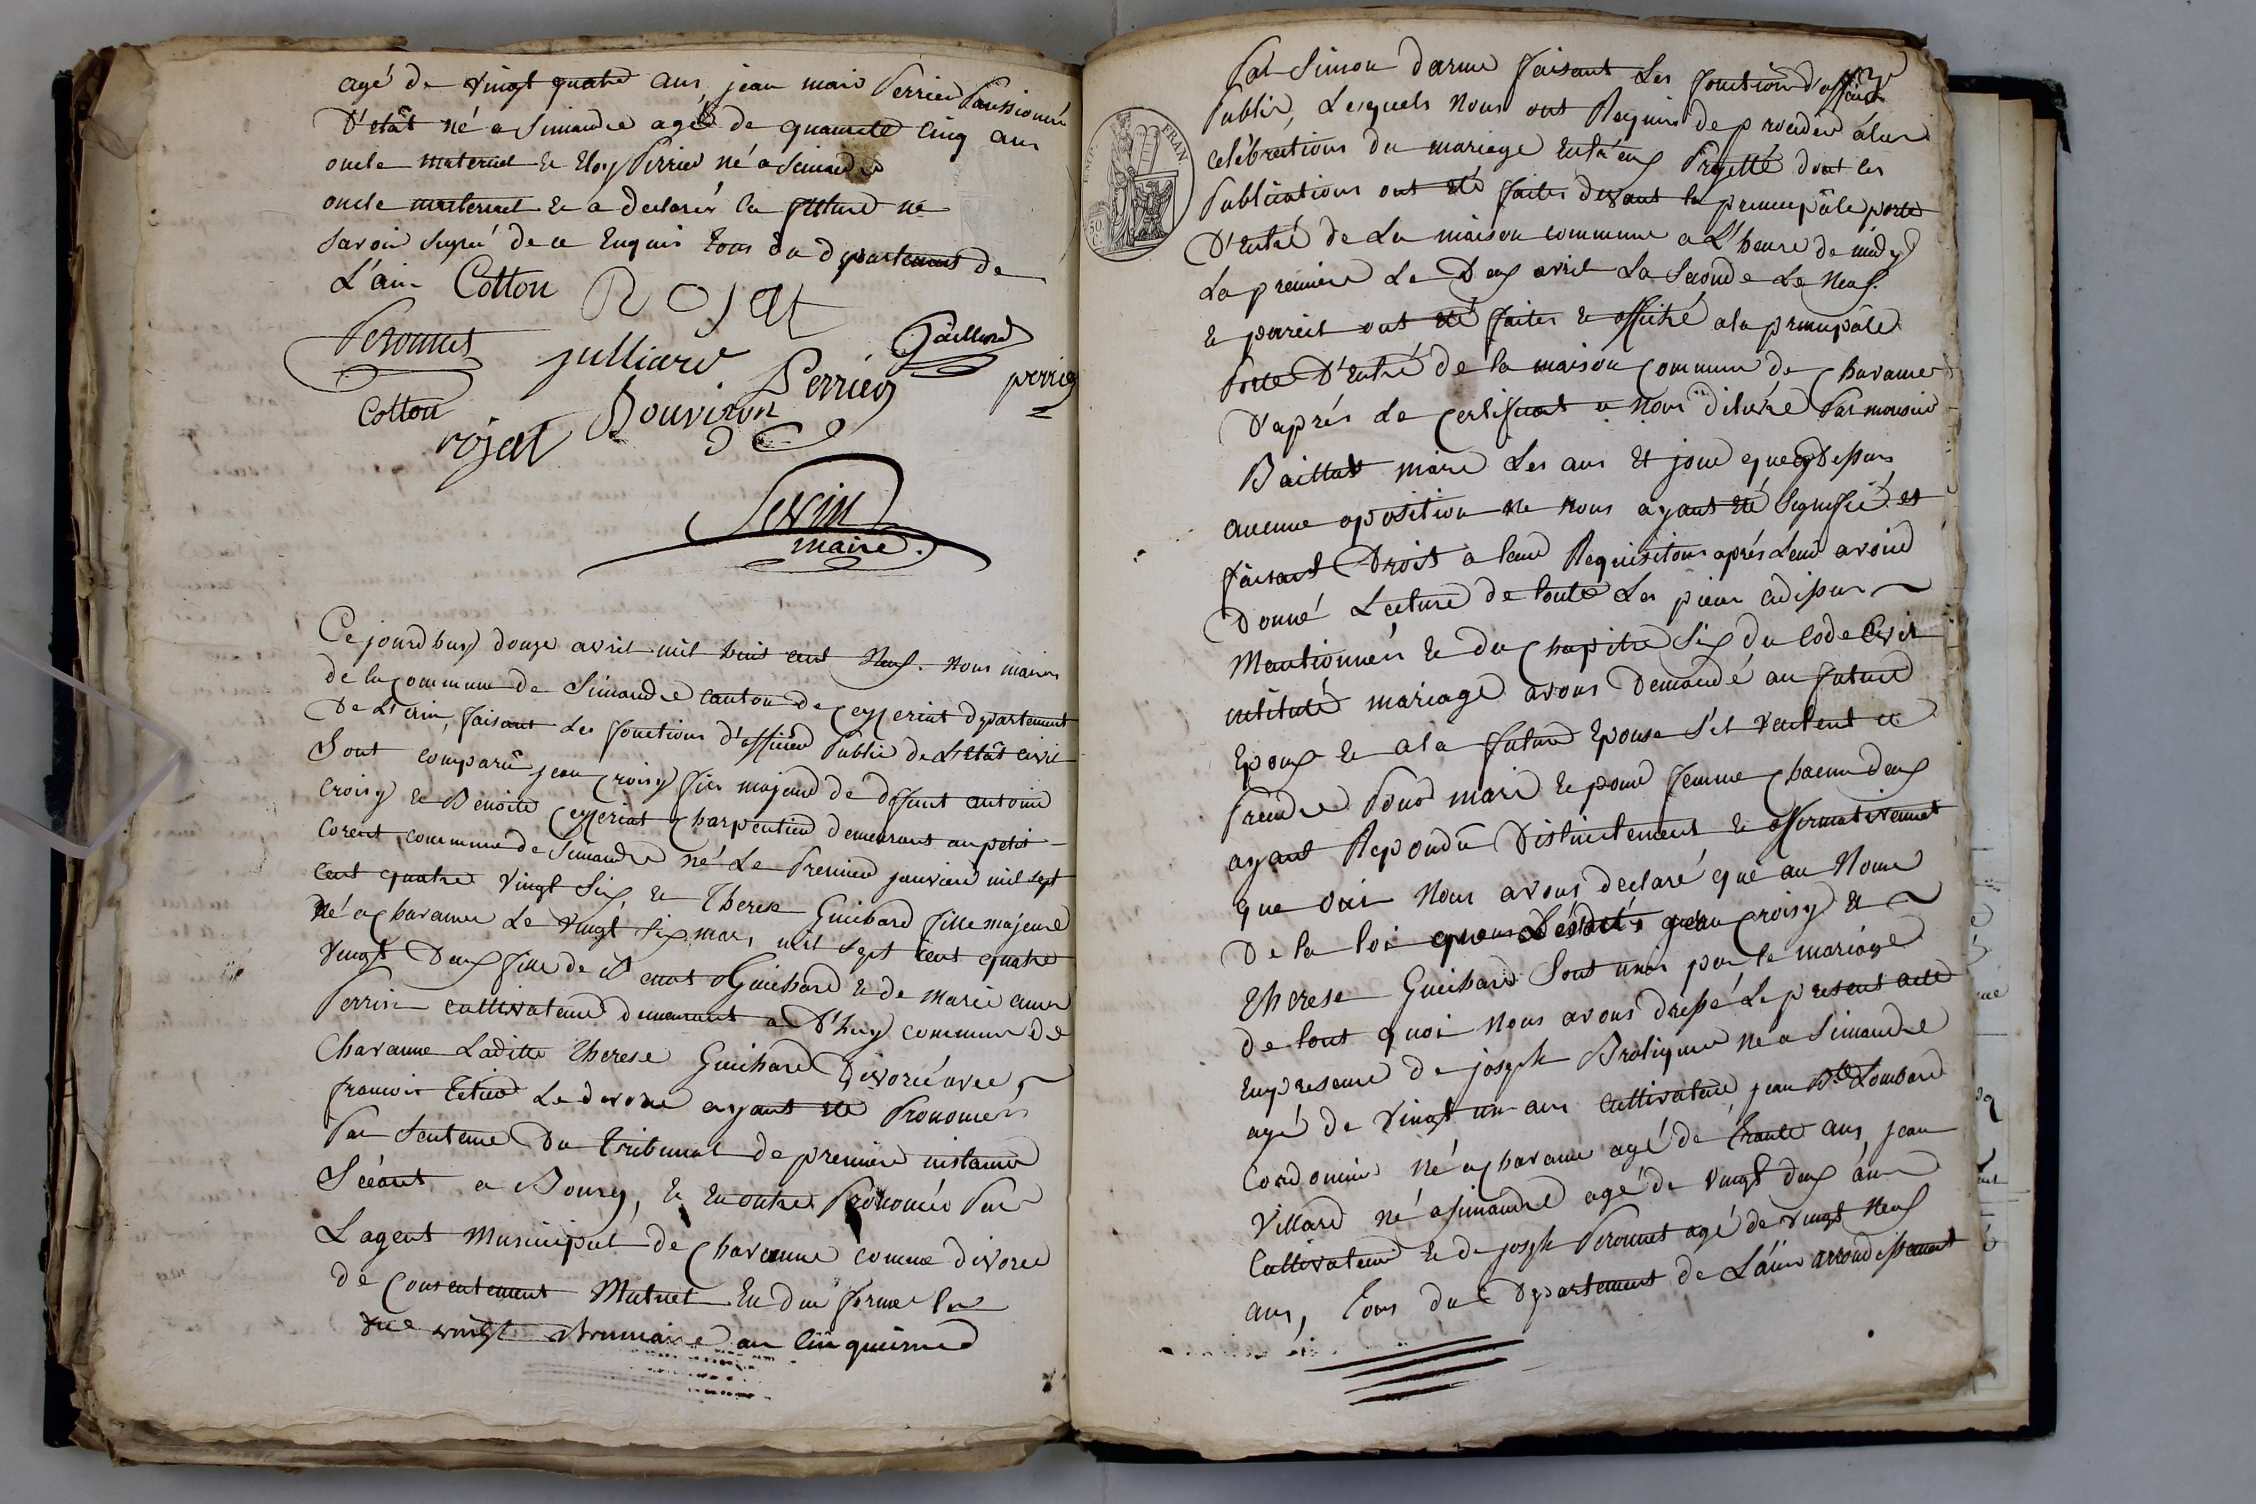 agé de vingt quatre ans, jean marie Perrier Panssionné
D'etât né a Simandre agé de quarente cinq ans
oncle maternel et Eloy Perrier né a Simandre
oncle maternel et a declarér la futture ne
Savoir signé de ce Enquis tous du departement de
L'ain Cotton ROJAT
Peronnet julliard Gaillard
Cotton rojat Bouviron Perrier perrier
Servin
maire.
Ce jourdhuy douze avril mil huit cent Neuf. Nous maire
de la commune de Simandre canton de Ceyzeriat departement
De L'ain, faisant Les fonctions d'officier Public de L'etât civil
Sont comparû jean Croisy fils majeur de deffunt antoine
Croisy et Benoite Ceyzeriat Charpentier demeurant au petit
Corent, commune de Simandre né Le Premier janvier mil sept
cent quatre vingt Six, et Therese Guichard fille majeure
Né a Chavanne Le vingt Six mars mil sept cent quatre
vingt Deux fille de Guichard et de Marie anne
Perrin cultivateur demeurant a D'huy commune de
Chavanne Laditte Therese Guichard Divorcé avec
francois Tetier Le divorce ayant ete Prononcés
Par Sentence Du Tribunal de premiere instance
Sééant a Bourg, et En outre Prononcée Par
L'agent Municipal de Chavanne comme divorce
de Consentement Mutuel En due forme le
vingt Brumaire an cinquieme
Par Simon darme faisant Les fonctions d'officier
Public, Lesquels Nous ont Requis de proceder á la
celébrations du mariage Entr'eux Projetté dont les
Publications ont eté faites devant la principâle porte
D'Entré de La maison commune a L'heure de midy
La premiere Le Deux avril La Seconde Le Neuf.
et pareil ont eté faites et affiché a la principâle
Porte D'Entré de la maison Commune de Chavanne
D'aprés Le Certificat a Nous délivré Par monsieur
Baillat maire Les ans Et jour que Dessus
aucune oposition ne nous ayant eté Signifié et
faisant Droit a leur Requisitions aprés Leur avoir
Donné Lecture de toute Les pieces cidessus
Mentionnés et du Chapitre Six du Code Civil
intitulé mariage avons Demandé au futur
Epoux et a la future Epouse s'il veulent ce
Prendre Pour mari et pour femme Chacun deux
ayant Repondû Distinctement et affirmativement
que oui Nous avons declaré que au Nom
De la loi que Lesdits jean Croisy et
Therese Guichard Sont unis par le mariage
de tout quoi Nous avons dressé Le present acte
En presence de joseph Bratigner né a Simandre
agé de vingt un ans cultivateur jean Bte Lombard
Cordonnier Né a Chavanne agé de trante ans, jean
Villard né a Simandre agé de vingt deux ans
Cultivateur et de joseph Peronnet agé de vingt Neuf
ans, tous du Departement de L'ain arrondissement